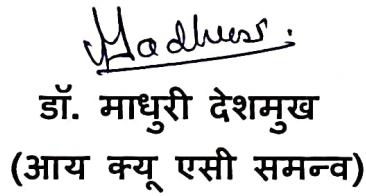 Madhuri
डॉ. माधुरी देशमुख
(आय क्यू एसी समन्व)